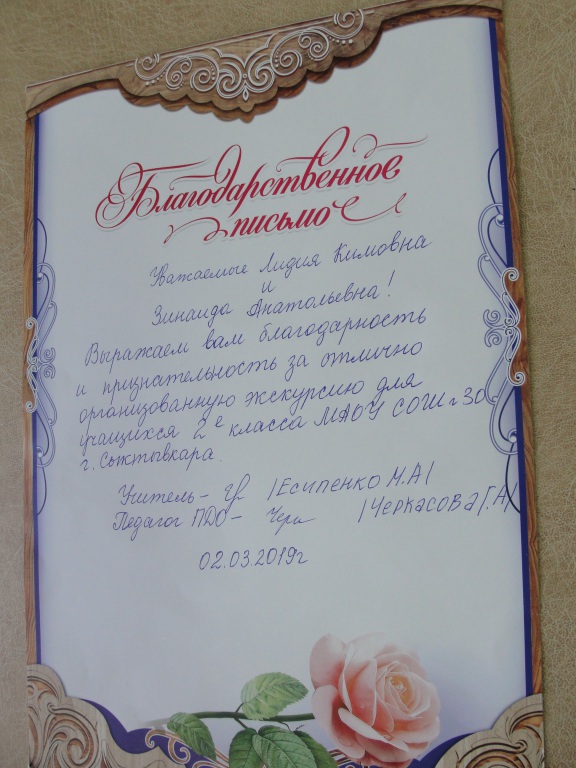 Благодарственное
письмо
Уважаемые Лидия Кимовна
и
Зинаида Анатольевна!
Выражаем вам благодарность
и признательность за отлично
организованную экскурсию для
учащихся 2е класса МАОУ СОШ №30
г. Сыктывкара.
Учитель – /Есипенко Н.А/
Педагог ПДО – Черк /Черкасова Г.А/
02.03.2019г